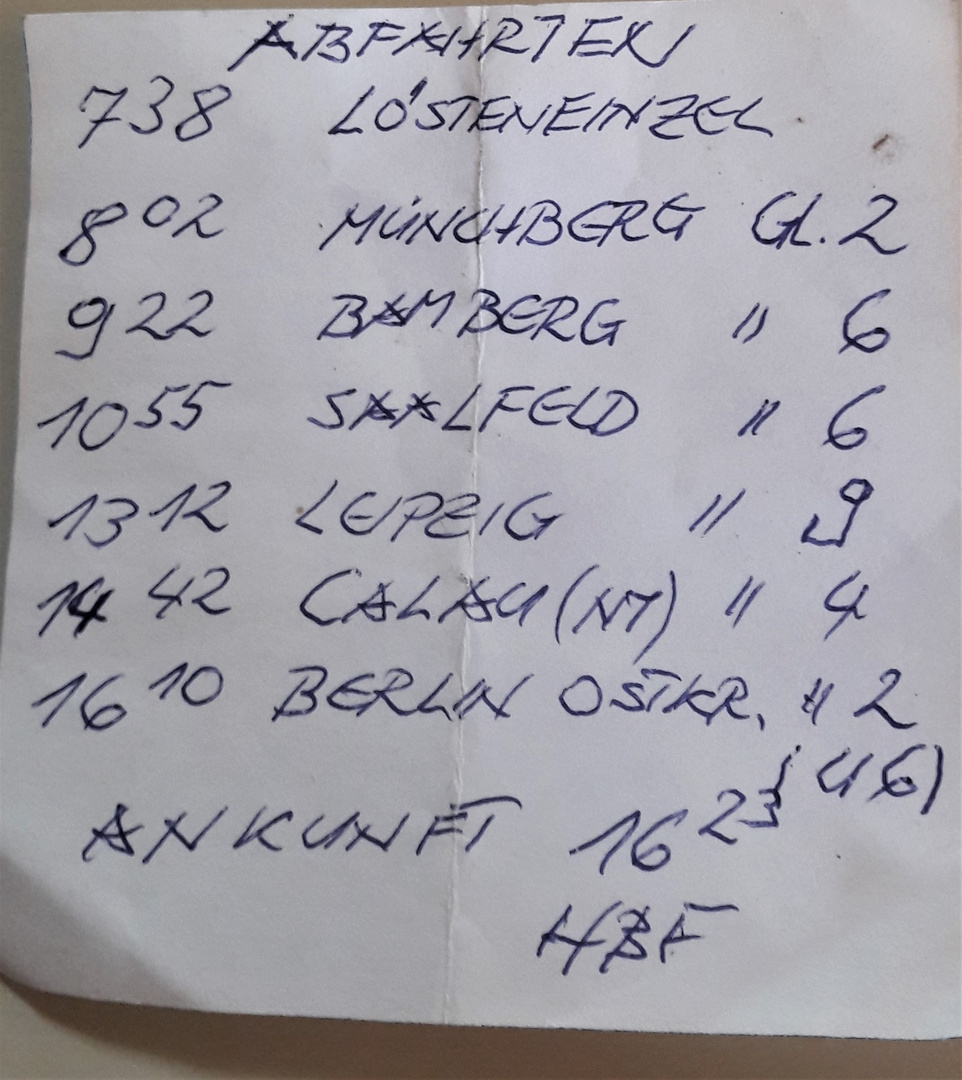 ABFAHRTEN
738 LÖSTENEINZEL
802 MÜNCHBERG Gl. 2
922 BAMBERG " 6
1055 SAALFELD " 6
1312 LEIPZIG " 9
1442 CALAU (NT) " 4
1610 BERLIN OSTKR. " 2
ANKUNFT 1623
HBF